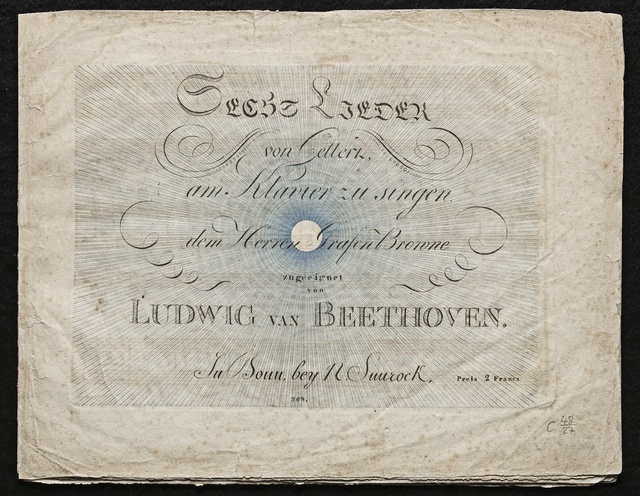 Sechs Lieder
von Gellert,
am Klavier zu singen
dem Herren Grafen Browne
zugeeignet
von
LUDWIG VAN BEETHOVEN.
In Bonn, bey N. Simrock,
Preis 2 Francs
268.
C 48/27